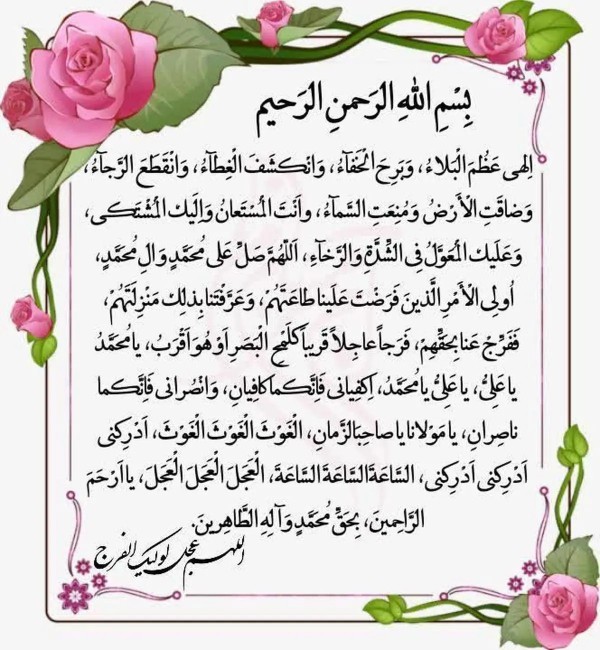 بِسْمِ اللهِ الرَحمنِ الرَحیم
اِلهی عَظُمَ الْبَلاءُ، وَبَرِحَ الْخَفاءُ، وَانْکَشَفَ الْغِطاءُ، وَانْقَطَعَ الرَّجاءُ،
وَضاقَتِ الْاَرْضُ وَمُنِعَتِ السَّماءُ، وَاَنْتَ الْمُسْتَعانُ وَاِلَیْكَ الْمُشْتَکی،
وَعَلَیْكَ الْمُعَوَّلُ فِی الشِّدَّةِ وَالرَّخاءِ، اَللّهُمَّ صَلِّ عَلی مُحَمَّدٍ وَالِ مُحَمَّدٍ،
اُولِی الْاَمْرِ الَّذینَ فَرَضْتَ عَلَیْنا طاعَتَهُمْ، وَعَرَّفْتَنا بِذلِكَ مَنْزِلَتَهُمْ،
فَفَرِّجْ عَنا بِحَقِّهِمْ، فَرَجاً عاجِلاً قَریباً کَلَمْحِ الْبَصَرِ اَوْ هُوَ اَقْرَبُ، یا مُحَمَّدُ
یا عَلِیُّ، یا عَلِیُّ یا مُحَمَّدُ، اِکْفِیانی فَاِنَّکُما کافِیانِ، وَانْصُرانی فَاِنَّکُما
ناصِرانِ، یا مَوْلانا یا صاحِبَ الزَّمانِ، الْغَوْثَ الْغَوْثَ الْغَوْثَ، اَدْرِکْنی
اَدْرِکْنی اَدْرِکْنی، السّاعَةَ السّاعَةَ السّاعَةَ، الْعَجَلَ الْعَجَلَ الْعَجَلَ، یا اَرْحَمَ
الرّاحِمینَ، بِحَقِّ مُحَمَّدٍ وَآلِهِ الطّاهِرینَ.
اللهم عجل لولیک الفرج